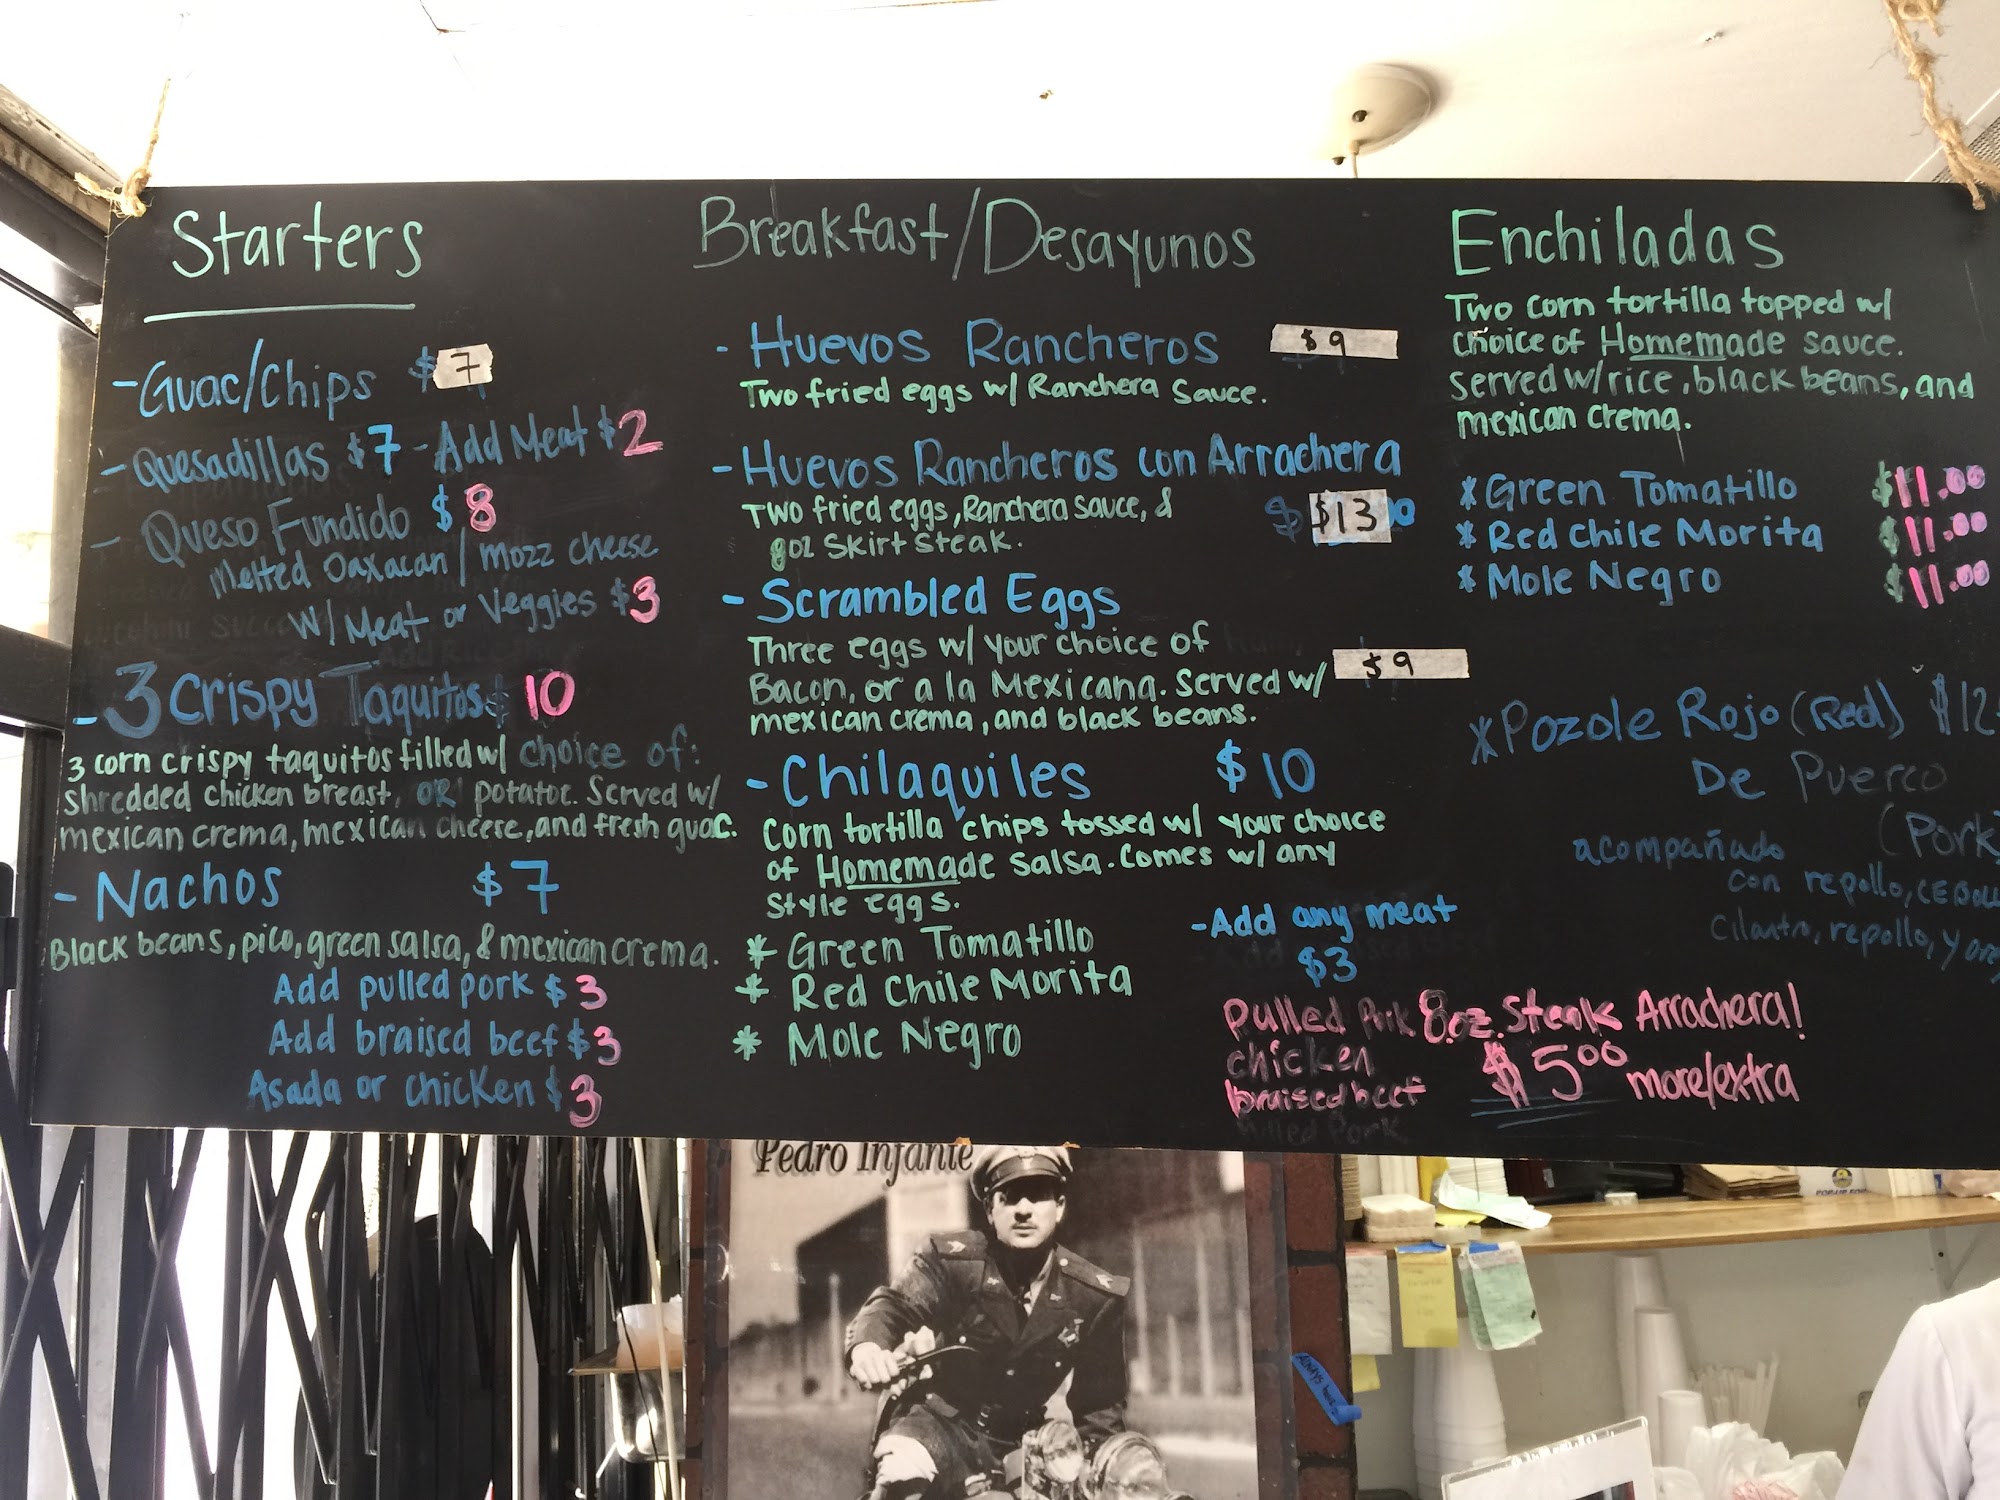 Starters
-Guac/Chips $7
-Quesadillas $7 -Add Meat $2
- Queso Fundido $8
Melted Oaxacan/mozz cheese
W/ Meat or Veggies $3
- 3 Crispy Taquitos $10
3 corn crispy taquitos filled w/ choice of:
Shredded chicken breast, OR potatoe. Served w/
mexican crema, mexican cheese, and fresh guac.
- Nachos $7
Black beans, pico, green salsa, & mexican crema.
Add pulled pork $3
Add braised beef $3
Asada or chicken $3
Breakfast/Desayunos
- Huevos Rancheros $9
Two fried eggs w/ Ranchera Sauce.
- Huevos Rancheros con Arrachera
Two fried eggs, Ranchera Sauce, & $13
8oz Skirt Steak.
- Scrambled Eggs
Three eggs w/ your choice of
Bacon, or a la Mexicana. Served w/ $9
mexican crema, and black beans.
- Chilaquiles $10
Corn tortilla chips tossed w/ your choice
of Homemade Salsa. Comes w/ any
Style eggs.
* Green Tomatillo
* Red Chile Morita
* Mole Negro
-Add any meat
$3
Pulled Pork 8oz. Steak Arrachera!
chicken $5.00 more/extra
braised beef
Enchiladas
Two corn tortilla topped w/
choice of Homemade sauce.
Served w/ rice, black beans, and
mexican crema.
*Green Tomatillo $11.00
* Red Chile Morita $11.00
* Mole Negro $11.00
*Pozole Rojo (Red) $12
De Puerco
(Pork)
acompañado
con repollo,
Cilantro, repollo, y
Pedro Infante